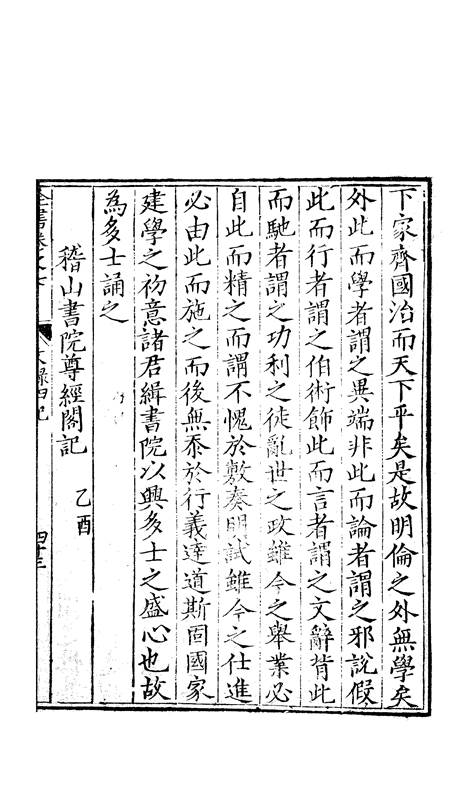 下家齊國治而天下平矣是故明倫之外無學矣
外此而學者謂之異端非此而論者謂之邪說假
此而行者謂之伯術飾此而言者謂之文辭背此
而馳者謂之功利之徒亂世之政雖今之舉業必
自此而精之而謂不愧於敷奏明試雖今之仕進
必由此而施之而後無忝於行義達道斯固國家
建學之初意諸君緝書院以興多士之盛心也故
為多士誦之
稽山書院尊經閣記 乙酉
全書卷之七 文錄四記 四十三